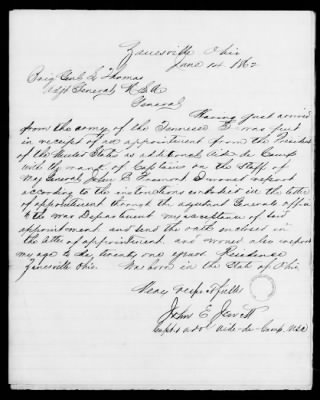 Zanesville Ohio
June 14 1862
Brig Genl L Thomas
Adjt General U.S.A
General
Having just arrived
from the army of the Tennessee I was just
in receipt of an appointment from the President
of the United States as additional Aide de Camp
with the rank of Captain on the Staff of
Maj General John C Fremont I report
according to the instructions contained in the letter
of appointment through the adjutant Generals office
to the war Department my acceptance of said
appointment and send the oath enclosed in
the letter of appointment and would also report
my age to be twenty one years Residence
Zanesville Ohio. Was born in the State of Ohio
Very respectfully
John E Jewett
Capt & addl Aide-de-Camp. USA